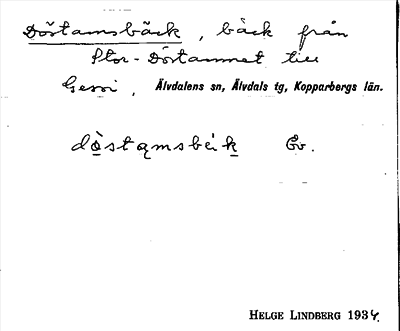 Döstamsbäck, bäck från
Stor-Döstammet till
Gessi, Älvdalens sn, Älvdals tg, Kopparbergs län.
döstamsbäik Ev.
HELGE LINDBERG 1934.